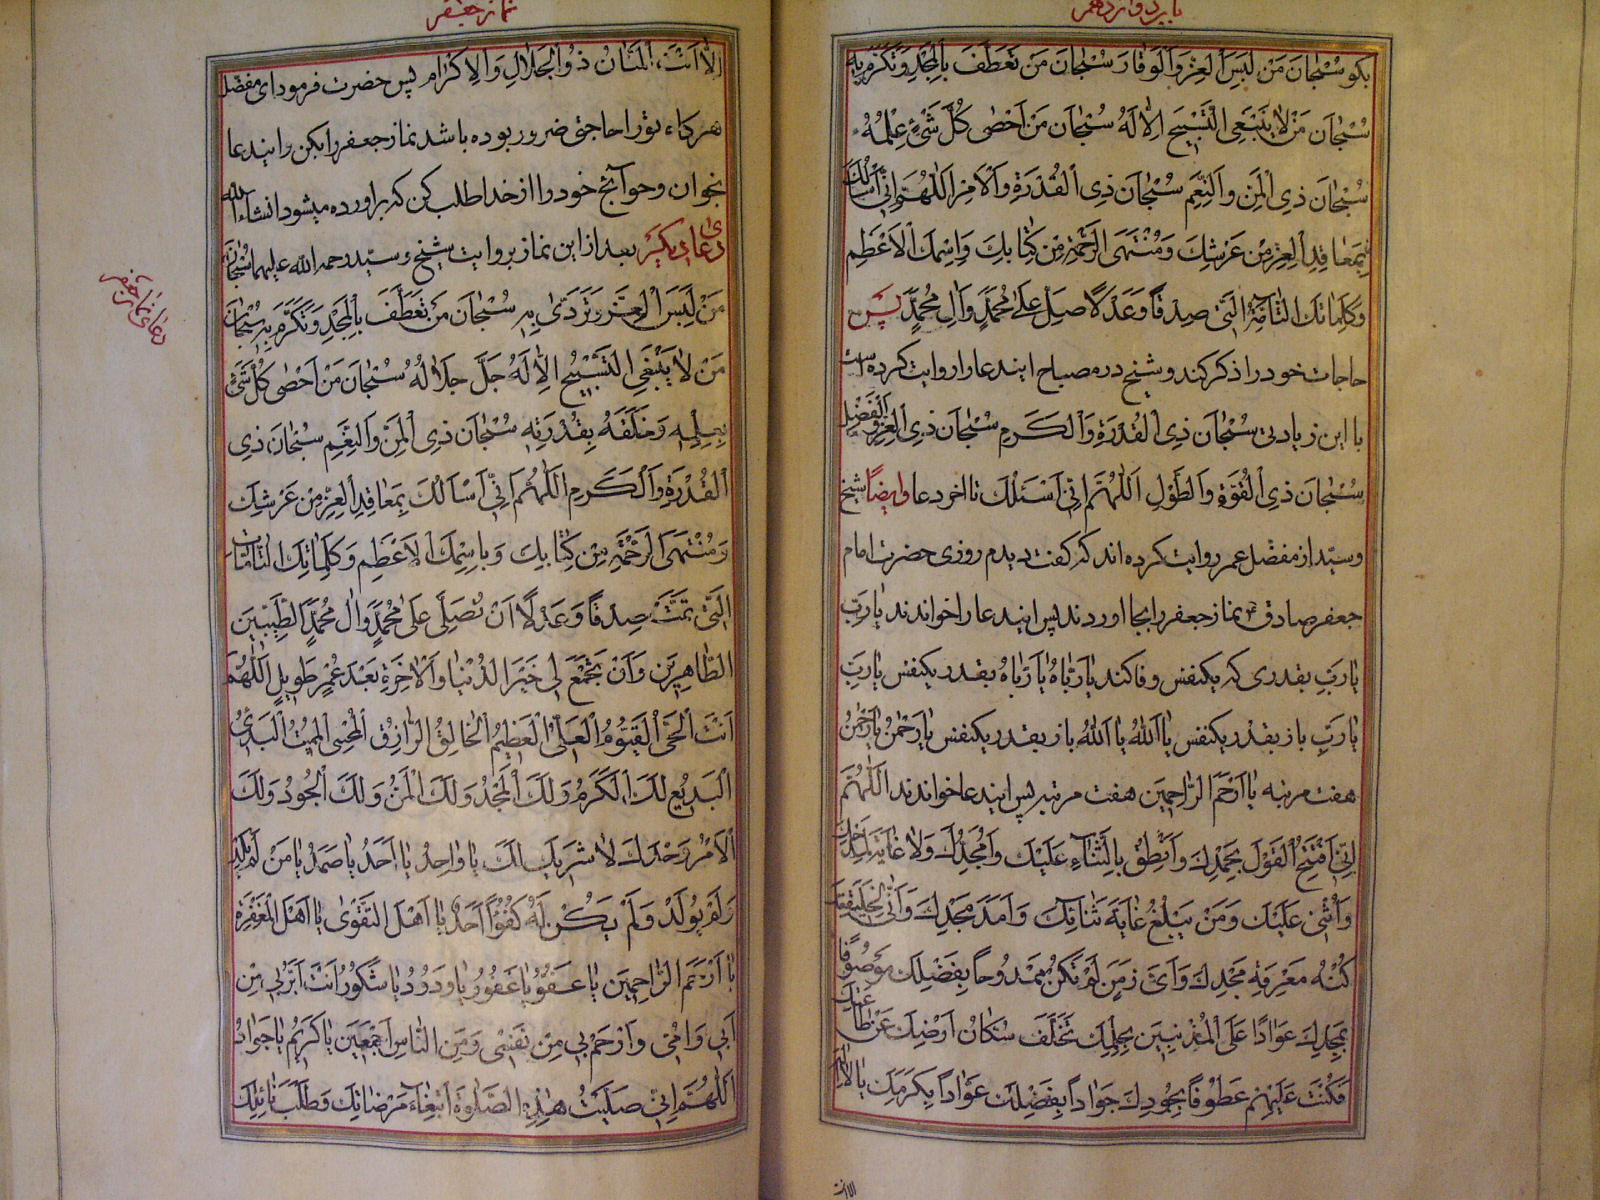 باب دوازدهم
بکو سُبْحانَ مَنْ لَبِسَ الْعِزَّ وَالْوَقارَ سُبْحانَ مَنْ تَعَطَّفَ بِالْمَجْدِ وَتَکَرَّمَ بِهِ
سُبْحانَ مَنْ لا يَنْبَغِي التَّسْبِيحُ اِلّا لَهُ سُبْحانَ مَنْ اَحْصٰى کُلَّ شَئٍ عِلْمُهُ
سُبْحانَ ذِي الْمَنِّ وَالنِّعَمِ سُبْحانَ ذِي الْقُدْرَةِ وَالْاَمْرِ اَللّٰهُمَّ اِنّي اَسْاَلُكَ
بِمَعاقِدِ الْعِزِّ مِنْ عَرْشِكَ وَمُنْتَهَى الرَّحْمَةِ مِنْ كِتابِكَ وَاِسْمِكَ الْاَعْظَمِ
وَكَلِماتِكَ التّامَّةِ الَّتي صِدْقًا وَعَدْلًا صَلِّ عَلٰى مُحَمَّدٍ وَاٰلِ مُحَمَّدٍ پس
حاجات خود را ذکر کند و شیخ در مصباح ایندعا را روایت کرده است
با این زیادتی سُبْحانَ ذِي الْقُدْرَةِ وَالْكَرَمِ سُبْحانَ ذِي الْعِزِّ وَالْفَضْلِ
سُبْحانَ ذِي الْقُوَّةِ وَالطَّوْلِ اَللّٰهُمَّ اِنّي اَسْئَلُكَ تا اخر دعا وایضًا شیخ
و سیّد از مفضّل عمر روایت کرده اند که کفت دیدم روزی حضرت امام
جعفر صادق ع نماز جعفر را بجا اوردند پس ایندعا را خواندند یارَبِّ
یارَبِّ بقدری که یکنفس وفا کند یا رَبّاهُ یا رَبّاهُ بقدر یکنفس یارَبِّ
یارَبِّ باز بقدر یکنفس یا اَللّٰهُ یا اَللّٰهُ باز بقدر یکنفس یا رَحْمٰنُ یا رَحْمٰنُ
هفت مرتبه یا اَرْحَمَ الرّاحِمِینَ هفت مرتبه پس ایندعا خواندند اَللّٰهُمَّ
اِنّي اَفْتَتِحُ الْقَوْلَ بِحَمْدِكَ وَاَنْطِقُ بِالثَّناءِ عَلَيْكَ وَاُمَجِّدُكَ وَلا غايَةَ لِمَدْحِكَ
وَاُثْني عَلَيْكَ وَمَنْ يَبْلُغُ غايَةَ ثَنائِكَ وَاَمَدَ مَجْدِكَ وَاَنّٰى لِخَلِيقَتِكَ
كُنْهُ مَعْرِفَةِ مَجْدِكَ وَاَيَّ زَمَنٍ لَمْ تَكُنْ مَمْدُوحاً بِفَضْلِكَ مَوْصُوفًا
بِمَجْدِكَ عَوّادًا عَلَى الْمُذْنِبِينَ بِحِلْمِكَ تَخَلَّفَ سُكّانُ اَرْضِكَ عَنْ طاعَتِكَ
فَكُنْتَ عَلَيْهِمْ عَطُوفًا بِجُودِكَ جَواداً بِفَضْلِكَ عَوّاداً بِكَرَمِكَ یا لا اِلٰهَ
الا انت
نماز جعفر
اِلّا اَنْتَ الْمَنّانُ ذُوالْجَلالِ وَالْاِكْرامِ پس حضرت فرمود ای مفضّل
هرکاه تو را حاجتی ضرور بوده باشد نماز جعفر را بکن و ایندعا
بخوان و حوآیج خود را از خدا طلب کن که براورده میشود انشاءالله
دعای دیکر بعد از این نماز بروایت شیخ و سیّد رحمه الله علیهما سُبْحانَ
مَنْ لَبِسَ الْعِزَّ وَتَرَدّٰى بِهِ سُبْحانَ مَنْ تَعَطَّفَ بِالْمَجْدِ وَتَكَرَّمَ بِهِ سُبْحانَ
مَنْ لا يَنْبَغِي التَّسْبِيحُ اِلّا لَهُ جَلَّ جَلالُهُ سُبْحانَ مَنْ اَحْصٰى كُلَّ شَئٍ
بِعِلْمِهِ وَخَلَقَهُ بِقُدْرَتِهِ سُبْحانَ ذِي الْمَنِّ وَالنِّعَمِ سُبْحانَ ذِي
الْقُدْرَةِ وَالْكَرَمِ اَللّٰهُمَّ اِنّي اَسْاَلُكَ بِمَعاقِدِ الْعِزِّ مِنْ عَرْشِكَ
وَمُنْتَهَى الرَّحْمَةِ مِنْ كِتابِكَ وَبِاسْمِكَ الْاَعْظَمِ وَكَلِماتِكَ التّامّاتِ
الَّتي تَمَّتْ صِدْقًا وَعَدْلًا اَنْ تُصَلِّيَ عَلٰى مُحَمَّدٍ وَاٰلِ مُحَمَّدٍ الطَّيِّبِينَ
الطّاهِرِينَ وَاَنْ تَجْمَعَ لي خَيْرَ الدُّنْيا وَالْاٰخِرَةِ بَعْدَ عُمْرٍ طَوِيلٍ اَللّٰهُمَّ
اَنْتَ الْحَيُّ الْقَيُّومُ الْعَلِيُّ الْعَظِيمُ الْخالِقُ الرّازِقُ الْمُحْيِي الْمُمِيتُ الْبَدِئُ
الْبَدِيعُ لَكَ الْكَرَمُ وَلَكَ الْمَجْدُ وَلَكَ الْمَنُّ وَلَكَ الْجُودُ وَلَكَ
الْاَمْرُ وَحْدَكَ لا شَرِيكَ لَكَ يا واحِدُ يا اَحَدُ يا صَمَدُ يا مَنْ لَمْ يَلِدْ
وَلَمْ يُولَدْ وَلَمْ يَكُنْ لَهُ كُفُوًا اَحَدٌ يا اَهْلَ التَّقْوٰى يا اَهْلَ الْمَغْفِرَةِ
يا اَرْحَمَ الرّاحِمِينَ يا عَفُوُّ يا غَفُورُ يا وَدُودُ يا شَكُورُ اَنْتَ اَبَرُّ بي مِنْ
اَبي وَاُمّي وَاَرْحَمُ بي مِنْ نَفْسي وَمِنَ النّاسِ اَجْمَعِينَ يا كَرِيمُ يا جَوادُ
اَللّٰهُمَّ اِنّي صَلَّيْتُ هٰذِهِ الصَّلٰوةَ ابْتِغاءَ مَرْضاتِكَ وَطَلَبَ نائِلِكَ
دعای نماز جعفر